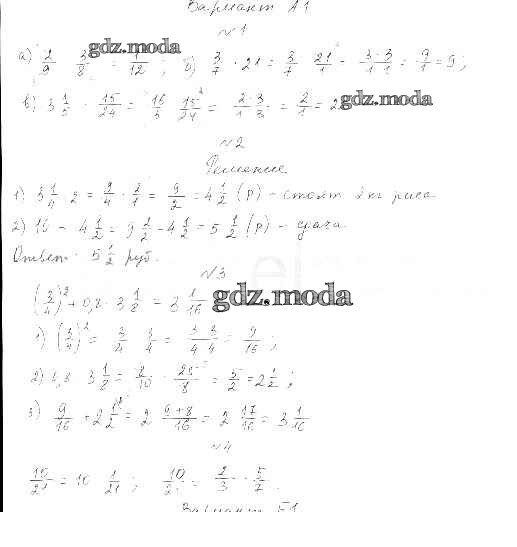 Вариант А1
№1
а) 2/9 · 3/8 = 1/12 ; б) 3/7 · 21 = 3/7 · 21/1 = 3·3/1·1 = 9/1 = 9 ;
gdz.moda
в) 3 1/5 · 15/24 = 16/5 · 15/24 = 2·3/1·3 = 2/1 = 2
gdz.moda
№2
Решение
1) · 2 = 9/4 · 2/1 = 9/2 = 4 1/2 (р) – стоят 2 кг риса
2) 10 – 4 1/2 = 9 2/2 – 4 1/2 = 5 1/2 (р) – сдача
Ответ: 5 1/2 руб.
№3
(3/4)² + 0,8 · 3 1/8 = 3 1/16
gdz.moda
1) (3/4)² = 3/4 · 3/4 = 3·3/4·4 = 9/16 ;
2) 0,8 · 3 1/8 = 8/10 · 25/8 = 5/2 = 2 1/2 ;
3) 9/16 + 2 1/2 = 2 9+8/16 = 2 17/16 = 3 1/16
№4
10/21 = 10 · 1/21 ; 10/21 = 2/3 · 5/7 .
Вариант Б1